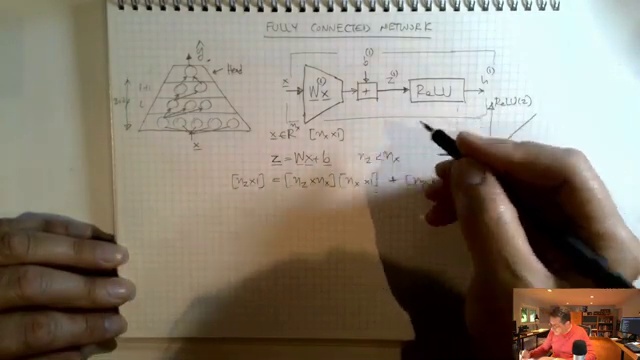 FULLY CONNECTED NETWORK
ŷ
Head
L
x
x
W x
(1)
(1)
b
+
z(1)
ReLU
h(1)
ReLU(z)
x ∈ R [nx x 1]
z = Wx + b nz < nx
[nz x 1] = [nz x nx] [nx x 1] + [n